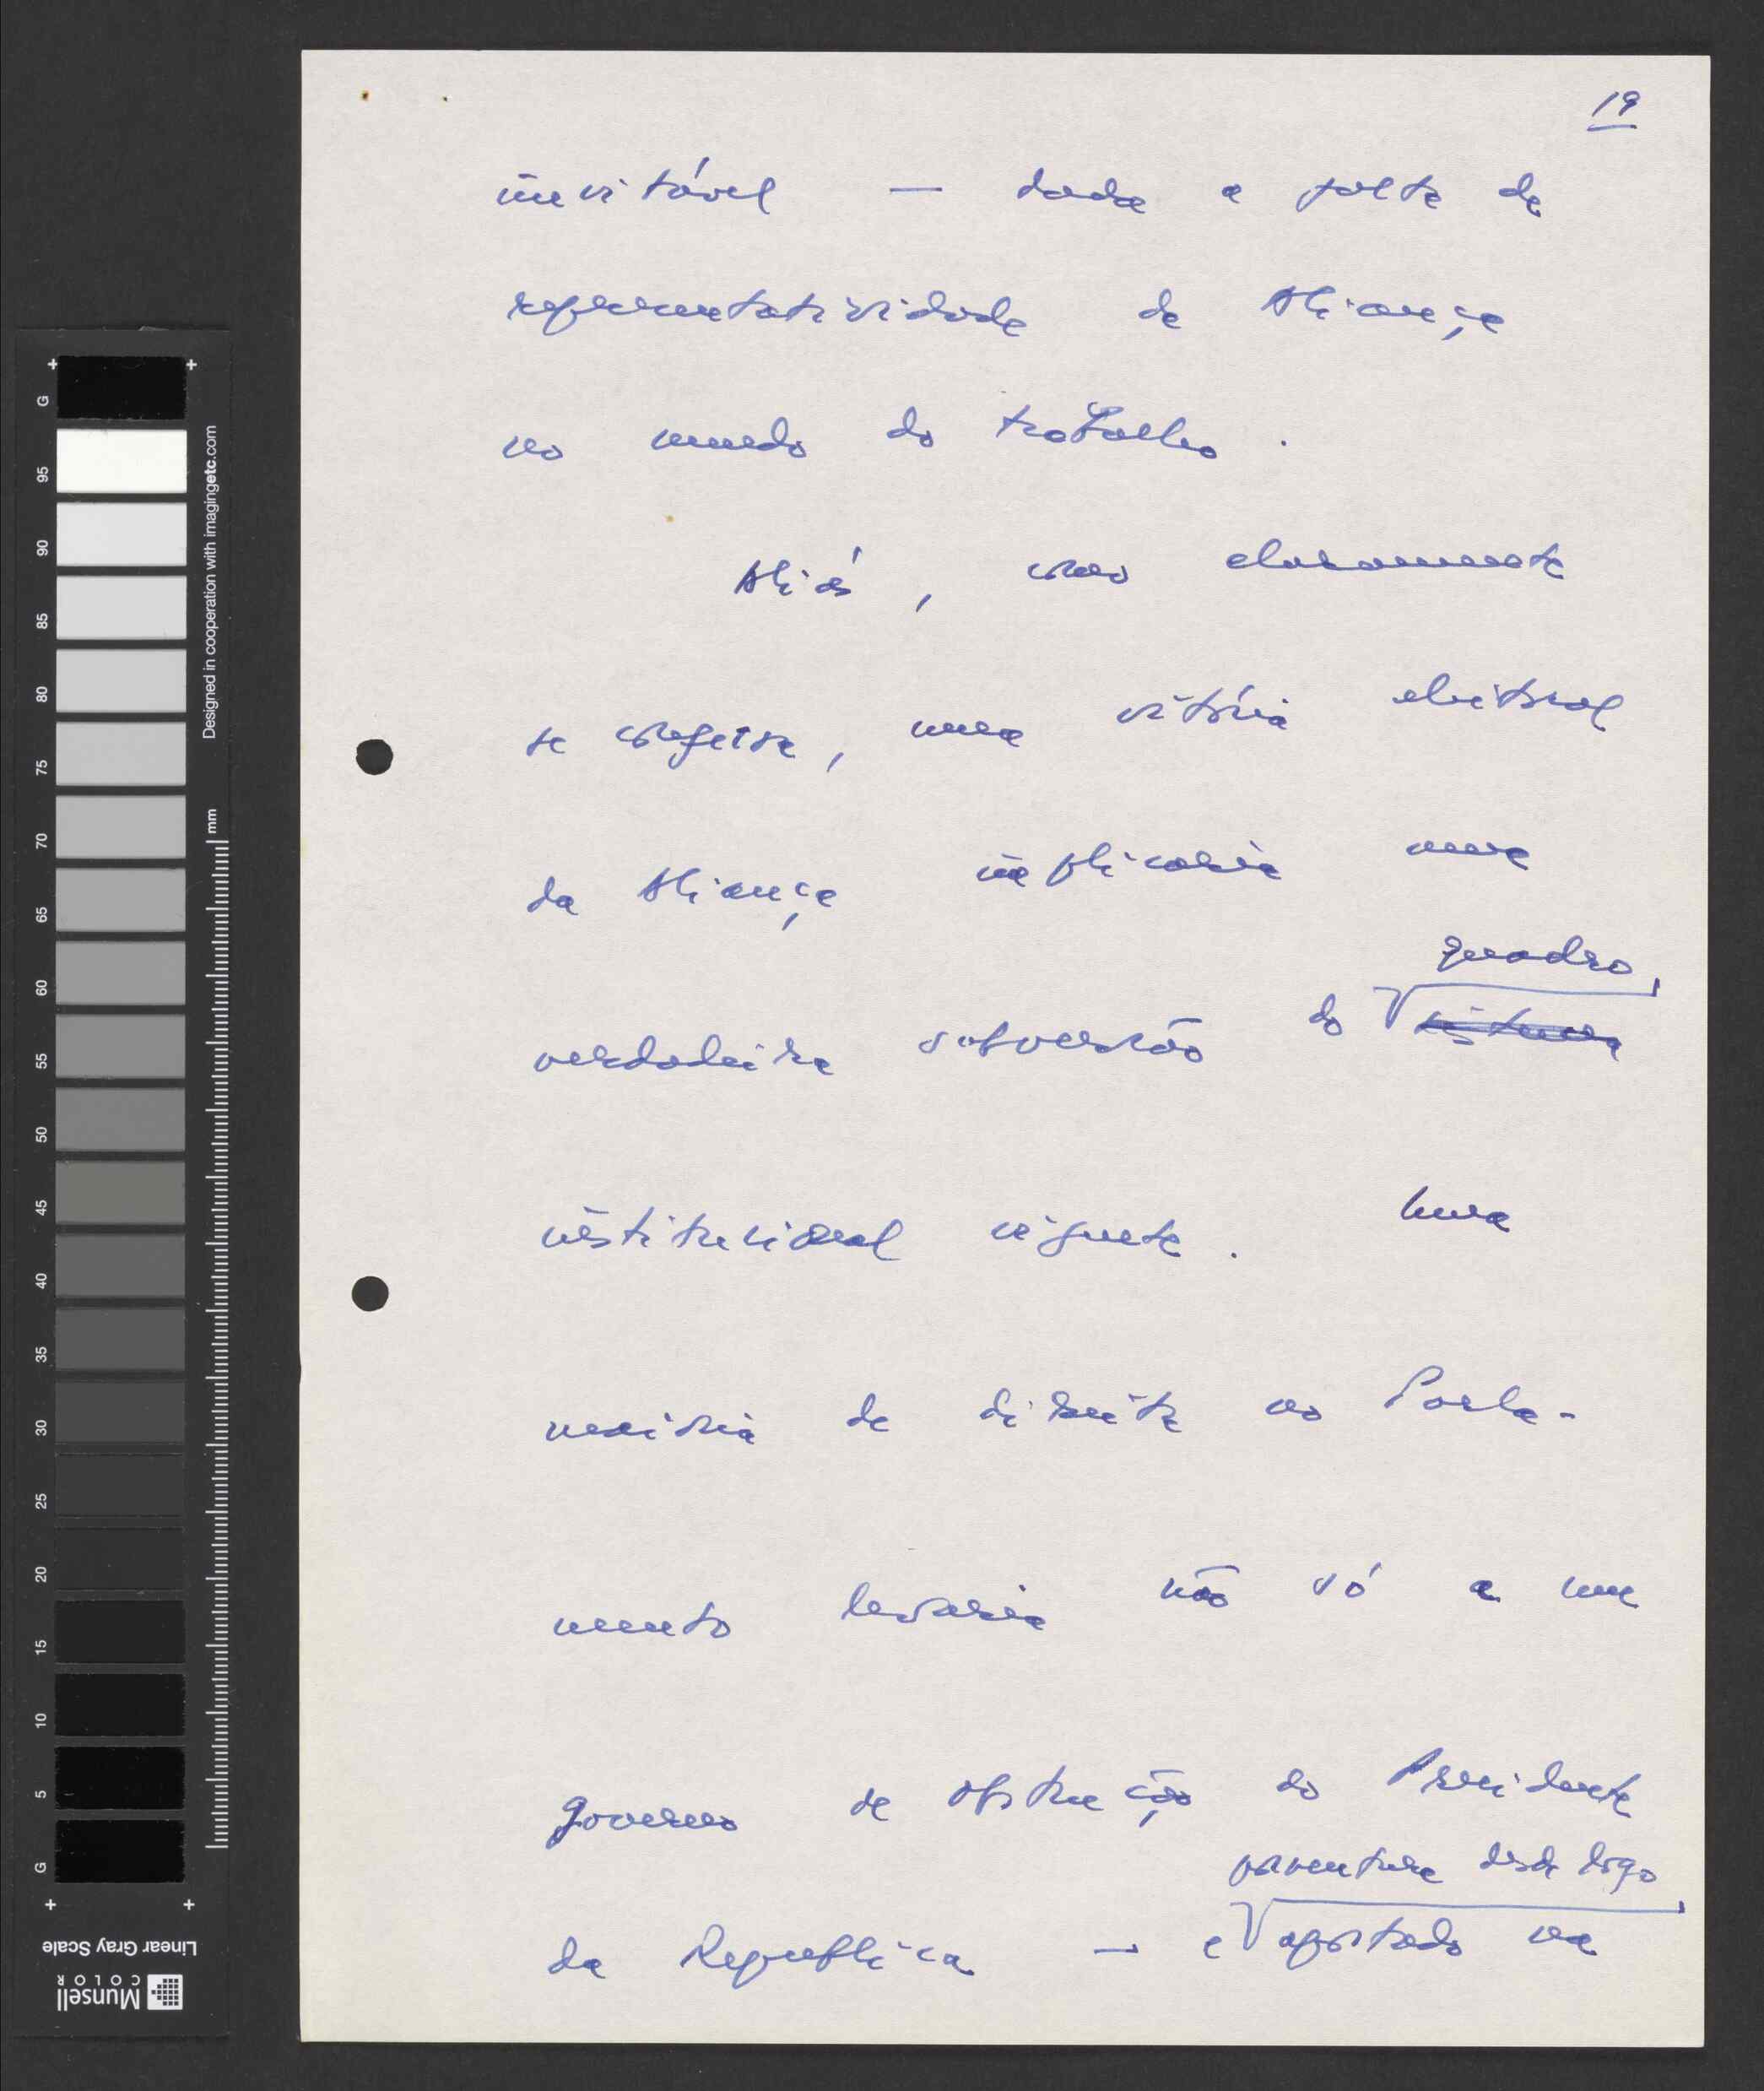 19
inevitável — dada a falta de
representatividade da Aliança
no mundo do trabalho.
Aliás, como claramente
se conclui, uma vitória eleitoral
da Aliança implicaria uma
quadro
verdadeira subversão do sistema
institucional vigente. Uma
maioria de direita no Parla-
mento levaria não só a um
governo de obstrução do Presidente
porventura desde logo
da República — e apostado na
G 95 90 85 80 75 70 65 60 55 50 45 40 35 30 25 20 15 10 5 G
Designed in cooperation with imagingetc.com
mm
Linear Gray Scale
Munsell
COLOR